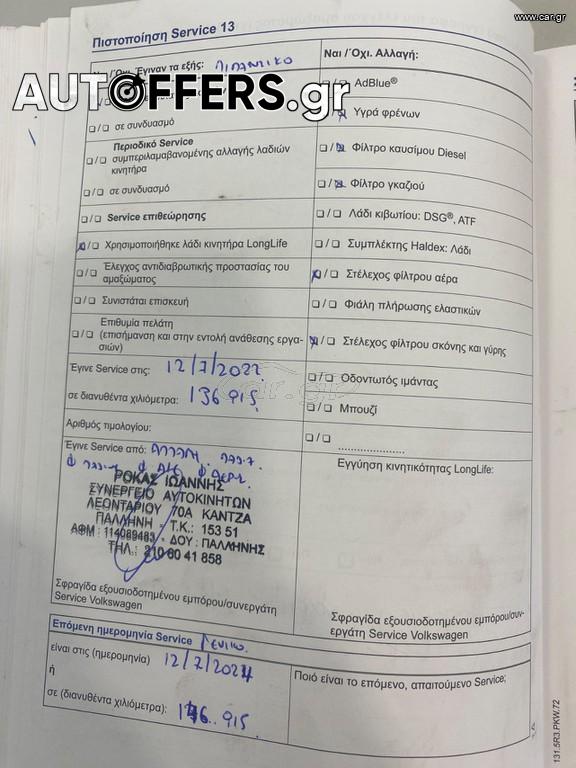 www.car.gr
Πιστοποίηση Service 13
Ναι / Όχι. Έγιναν τα εξής:
Ναι / Όχι. Αλλαγή:
AUTOFFERS.gr
❑/❑ AdBlue®
❑/❑ Υγρά φρένων
❑/❑ σε συνδυασμό
Περιοδικό Service
❑/❑ συμπεριλαμβανομένης αλλαγής λαδιών
κινητήρα
❑/❑ Φίλτρο καυσίμου Diesel
❑/❑ Φίλτρο γκαζιού
❑/❑ σε συνδυασμό
❑/❑ Λάδι κιβωτίου: DSG®, ATF
❑/❑ Service επιθεώρησης
❑/❑ Συμπλέκτης Haldex: Λάδι
❑/❑ Χρησιμοποιήθηκε λάδι κινητήρα LongLife
❑/❑ Στέλεχος φίλτρου αέρα
❑/❑ Έλεγχος αντιδιαβρωτικής προστασίας του
αμαξώματος
❑/❑ Φιάλη πλήρωσης ελαστικών
❑/❑ Συνιστάται επισκευή
Επιθυμία πελάτη
❑/❑ (επισήμανση και στην εντολή ανάθεσης εργα-
σιών)
❑/❑ Στέλεχος φίλτρου σκόνης και γύρης
Έγινε Service στις: 12/7/2022
❑/❑ Οδοντωτός ιμάντας
σε διανυθέντα χιλιόμετρα: 136 915
❑/❑ Μπουζί
car.gr
Αριθμός τιμολογίου:
❑/❑ ....................
Έγινε Service από:
Εγγύηση κινητικότητας LongLife:
ΡΟΚΑΣ ΙΩΑΝΝΗΣ
ΣΥΝΕΡΓΕΙΟ ΑΥΤΟΚΙΝΗΤΩΝ
ΛΕΟΝΤΑΡΙΟΥ 70Α ΚΑΝΤΖΑ
ΠΑΛΛΗΝΗ - Τ.Κ.: 153 51
ΑΦΜ : 114089483 - ΔΟΥ : ΠΑΛΛΗΝΗΣ
ΤΗΛ.: 210 60 41 858
Σφραγίδα εξουσιοδοτημένου εμπόρου/συνεργάτη
Service Volkswagen
Σφραγίδα εξουσιοδοτημένου εμπόρου/συν-
εργάτη Service Volkswagen
Επόμενη ημερομηνία Service
είναι στις (ημερομηνία) 12/7/2024
ή
Ποιό είναι το επόμενο, απαιτούμενο Service;
σε (διανυθέντα χιλιόμετρα): 146..915
131.5R3.PKW.72